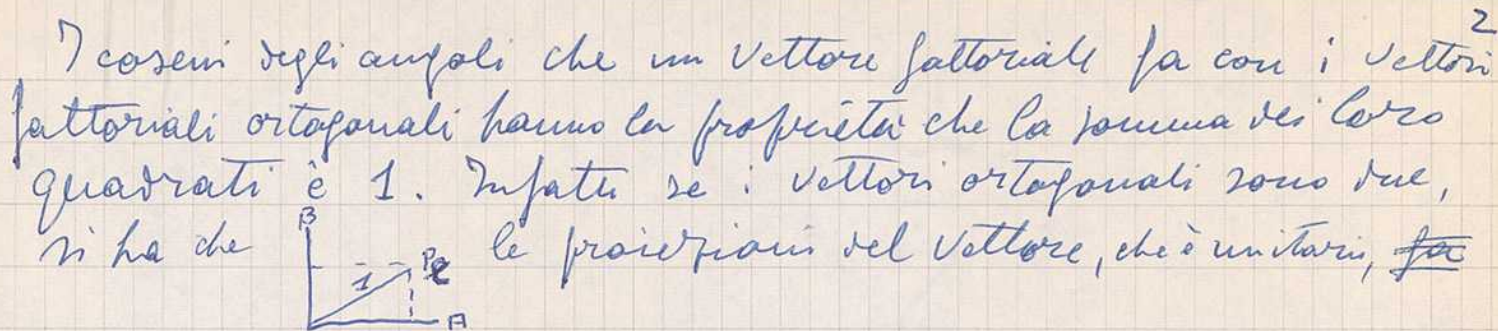 2
I coseni degli angoli che un Vettore fattoriale fa con i Vettori
fattoriali ortogonali hanno la proprietà che la somma dei loro
quadrati è 1. Infatti se i Vettori ortogonali sono due,
si ha che B 1 A le proiezioni del Vettore, che è unitario, fa